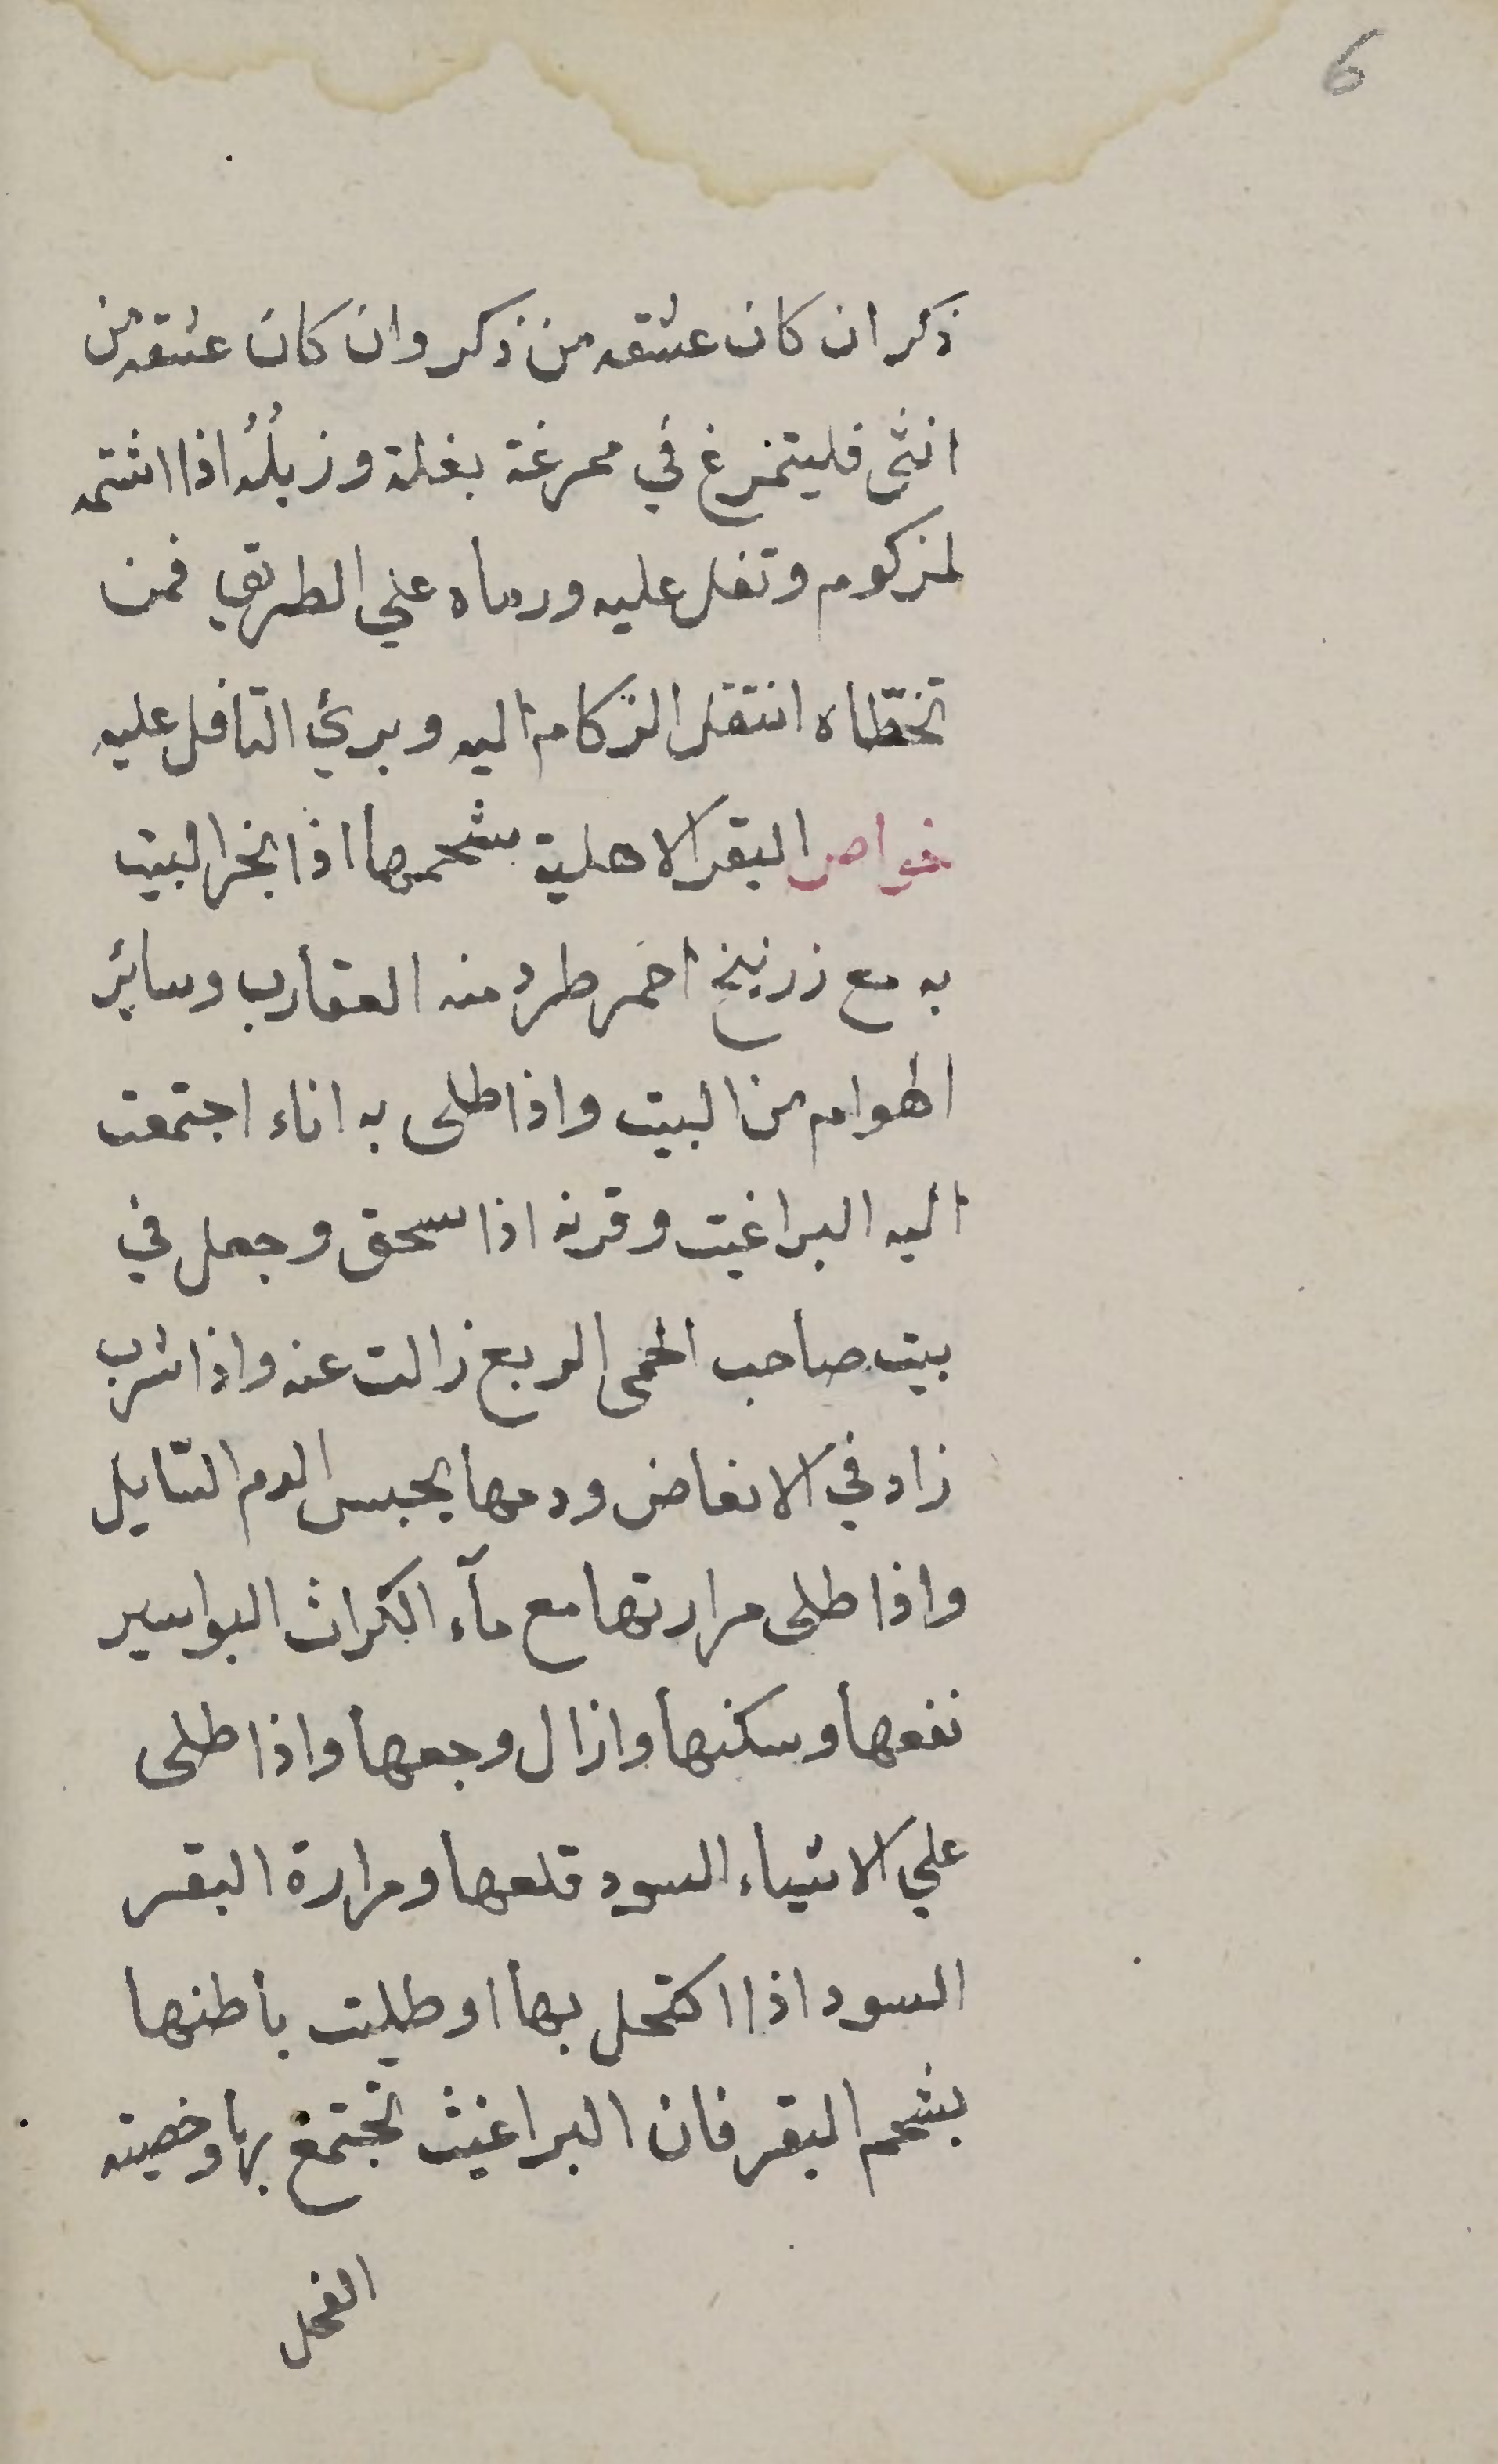 6
ذكر ان كان عشقه من ذكر وان كان عشقه من
انثى فليتمرغ في ممرغة بغلة وزبلُهُ اذا اشتمه
لمزكوم وتفل عليه ورماه علي الطريق فمن
تخطّاه انتقل الزكام اليه وبرئ التافل عليه
خواص البقر الاهلية شحمها اذا بخر البيت
به مع زرنيخ احمر طرد منه العقارب وسائر
الهوام من البيت واذا طلى به اناء اجتمعت
اليه البراغيت وقرنه اذا سحق وجعل في
بيت صاحب الحمى الربع زالت عنه واذا شرب
زاد في الانعاض ودمها يحبس الدم السّايل
واذا طلى مرارتها مع مآء الكراث البواسير
نفعها وسكنها وازال وجعها واذا طلى
علي الاشياء السود قلعها ومرارة البقر
السود اذا اكتحل بها او طليت باطنها
بشحم البقر فان البراغيث تجتمع بها وخصيته
الفحل